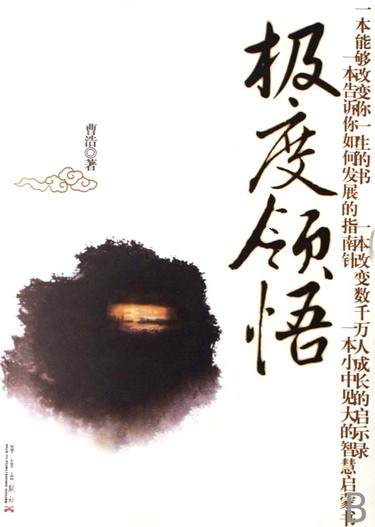 一本能够改变你一生的书
一本告诉你如何发展的指南针
一本改变数千万人成长的启示录
一本小中见大的智慧启蒙书
极度领悟
曹浩◎著
B